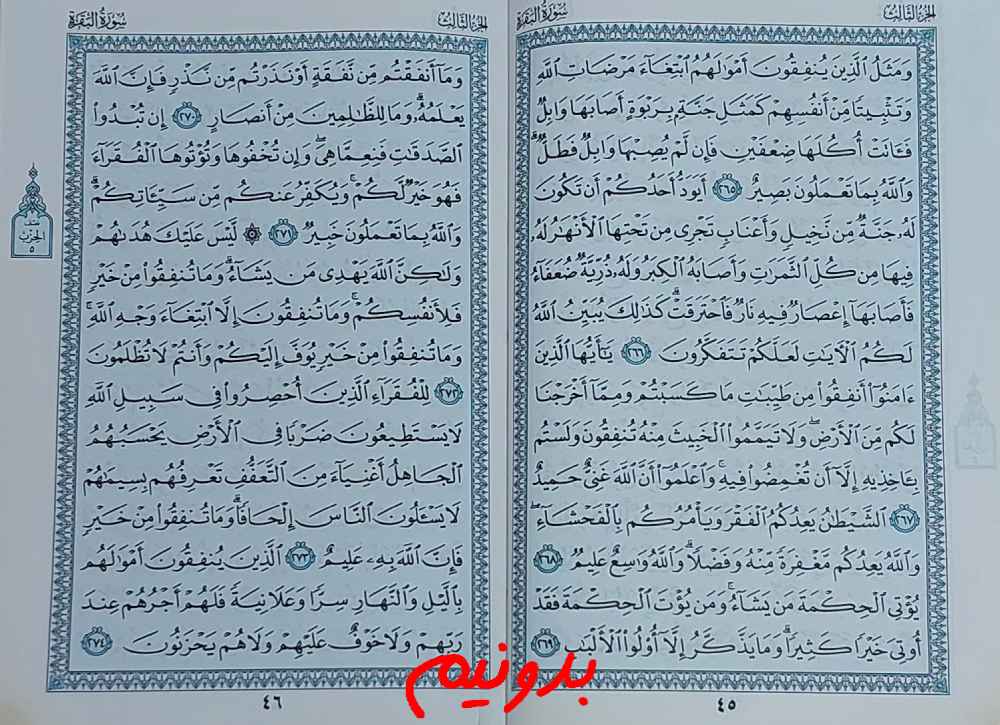 الجزء الثالث
سورة البقرة
وَمَثَلُ ٱلَّذِينَ يُنفِقُونَ أَمْوَٰلَهُمُ ٱبْتِغَآءَ مَرْضَاتِ ٱللَّهِ
وَتَثْبِيتًا مِّنْ أَنفُسِهِمْ كَمَثَلِ جَنَّةٍۭ بِرَبْوَةٍ أَصَابَهَا وَابِلٌ
فَـَٔاتَتْ أُكُلَهَا ضِعْفَيْنِ فَإِن لَّمْ يُصِبْهَا وَابِلٌ فَطَلٌّ ۗ
وَٱللَّهُ بِمَا تَعْمَلُونَ بَصِيرٌ ٢٦٥ أَيَوَدُّ أَحَدُكُمْ أَن تَكُونَ
لَهُۥ جَنَّةٌ مِّن نَّخِيلٍ وَأَعْنَابٍ تَجْرِى مِن تَحْتِهَا ٱلْأَنْهَٰرُ لَهُۥ
فِيهَا مِن كُلِّ ٱلثَّمَرَٰتِ وَأَصَابَهُ ٱلْكِبَرُ وَلَهُۥ ذُرِّيَّةٌ ضُعَفَآءُ
فَأَصَابَهَآ إِعْصَارٌ فِيهِ نَارٌ فَٱحْتَرَقَتْ ۗ كَذَٰلِكَ يُبَيِّنُ ٱللَّهُ
لَكُمُ ٱلْـَٔايَٰتِ لَعَلَّكُمْ تَتَفَكَّرُونَ ٢٦٦ يَٰٓأَيُّهَا ٱلَّذِينَ
ءَامَنُوٓا۟ أَنفِقُوا۟ مِن طَيِّبَٰتِ مَا كَسَبْتُمْ وَمِمَّآ أَخْرَجْنَا
لَكُم مِّنَ ٱلْأَرْضِ ۖ وَلَا تَيَمَّمُوا۟ ٱلْخَبِيثَ مِنْهُ تُنفِقُونَ وَلَسْتُم
بِـَٔاخِذِيهِ إِلَّآ أَن تُغْمِضُوا۟ فِيهِ ۚ وَٱعْلَمُوٓا۟ أَنَّ ٱللَّهَ غَنِىٌّ حَمِيدٌ
٢٦٧ ٱلشَّيْطَٰنُ يَعِدُكُمُ ٱلْفَقْرَ وَيَأْمُرُكُم بِٱلْفَحْشَآءِ ۖ
وَٱللَّهُ يَعِدُكُم مَّغْفِرَةً مِّنْهُ وَفَضْلًا ۗ وَٱللَّهُ وَٰسِعٌ عَلِيمٌ ٢٦٨
يُؤْتِى ٱلْحِكْمَةَ مَن يَشَآءُ ۚ وَمَن يُؤْتَ ٱلْحِكْمَةَ فَقَدْ
أُوتِىَ خَيْرًا كَثِيرًا ۗ وَمَا يَذَّكَّرُ إِلَّآ أُو۟لُوا۟ ٱلْأَلْبَٰبِ ٢٦٩
٤٥
الجزء الثالث
سورة البقرة
وَمَآ أَنفَقْتُم مِّن نَّفَقَةٍ أَوْ نَذَرْتُم مِّن نَّذْرٍ فَإِنَّ ٱللَّهَ
يَعْلَمُهُۥ ۗ وَمَا لِلظَّٰلِمِينَ مِنْ أَنصَارٍ ٢٧٠ إِن تُبْدُوا۟
ٱلصَّدَقَٰتِ فَنِعِمَّا هِىَ ۖ وَإِن تُخْفُوهَا وَتُؤْتُوهَا ٱلْفُقَرَآءَ
فَهُوَ خَيْرٌ لَّكُمْ ۚ وَيُكَفِّرُ عَنكُم مِّن سَيِّـَٔاتِكُمْ ۗ
وَٱللَّهُ بِمَا تَعْمَلُونَ خَبِيرٌ ٢٧١ ۞ لَّيْسَ عَلَيْكَ هُدَىٰهُمْ
وَلَٰكِنَّ ٱللَّهَ يَهْدِى مَن يَشَآءُ ۗ وَمَا تُنفِقُوا۟ مِنْ خَيْرٍ
فَلِأَنفُسِكُمْ ۚ وَمَا تُنفِقُونَ إِلَّا ٱبْتِغَآءَ وَجْهِ ٱللَّهِ ۚ
وَمَا تُنفِقُوا۟ مِنْ خَيْرٍ يُوَفَّ إِلَيْكُمْ وَأَنتُمْ لَا تُظْلَمُونَ
٢٧٢ لِلْفُقَرَآءِ ٱلَّذِينَ أُحْصِرُوا۟ فِى سَبِيلِ ٱللَّهِ
لَا يَسْتَطِيعُونَ ضَرْبًا فِى ٱلْأَرْضِ يَحْسَبُهُمُ
ٱلْجَاهِلُ أَغْنِيَآءَ مِنَ ٱلتَّعَفُّفِ تَعْرِفُهُم بِسِيمَٰهُمْ
لَا يَسْـَٔلُونَ ٱلنَّاسَ إِلْحَافًا ۗ وَمَا تُنفِقُوا۟ مِنْ خَيْرٍ
فَإِنَّ ٱللَّهَ بِهِۦ عَلِيمٌ ٢٧٣ ٱلَّذِينَ يُنفِقُونَ أَمْوَٰلَهُم
بِٱلَّيْلِ وَٱلنَّهَارِ سِرًّا وَعَلَانِيَةً فَلَهُمْ أَجْرُهُمْ عِندَ
رَبِّهِمْ وَلَا خَوْفٌ عَلَيْهِمْ وَلَا هُمْ يَحْزَنُونَ ٢٧٤
الحزب
٥
٤٦
بدونیم